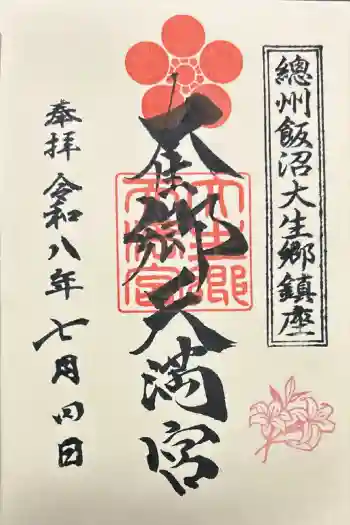 總州飯沼大生郷鎮座
大生郷天満宮
大生郷天満宮
奉拝 令和八年七月四日